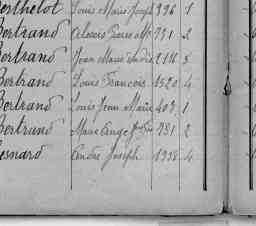 Berthelot Louis Marie Joseph 996 1
Bertrand Alexis Pierre M 731 2
Bertrand Jean Marie André 2116 3
Bertrand Louis François 1520 4
Bertrand Louis Jean Marie 407 1
Bertrand Marie Ange 731 2
esnard André Joseph 1958 4